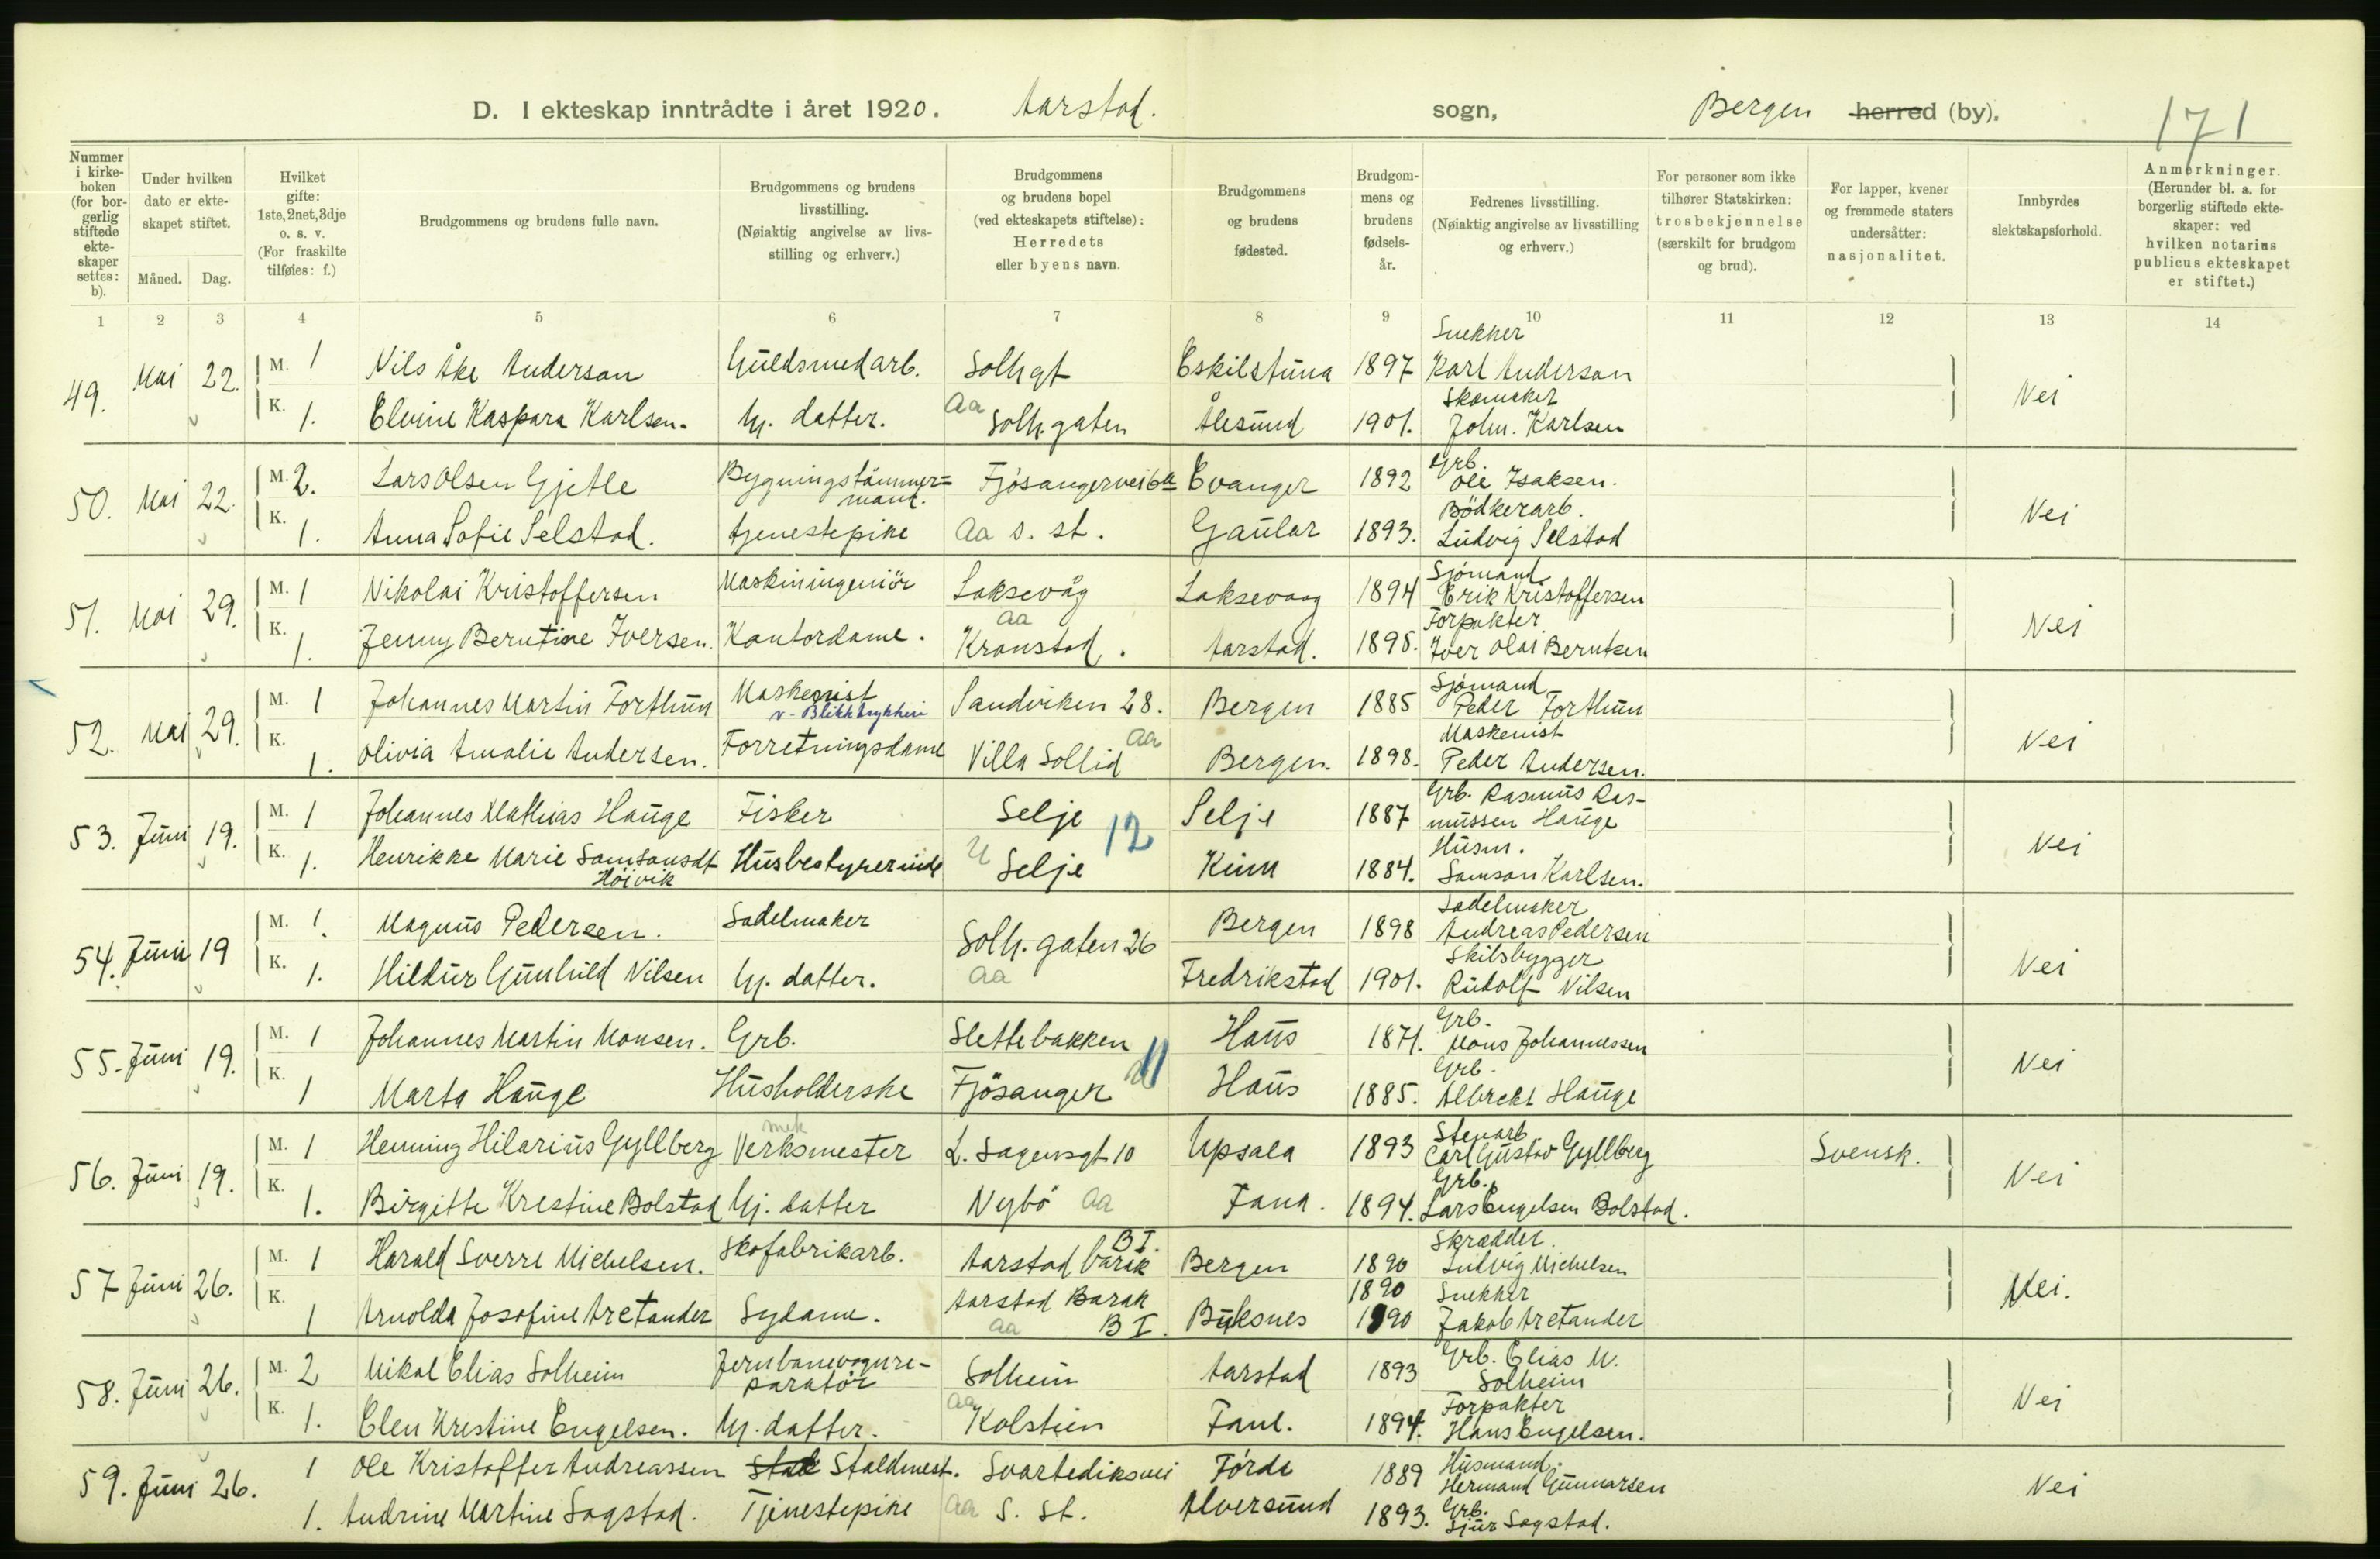 D. I ekteskap inntrådte i året 1920. Aarstad. sogn, Bergen herred (by). 171
Nummer i kirkeboken (for borgerlig stiftede ekteskaper settes: b).
Under hvilken dato er ekteskapet stiftet.
Måned. Dag.
Hvilket gifte: 1ste, 2net, 3dje o. s. v. (For fraskilte tilføies: f.)
Brudgommens og brudens fulle navn.
Brudgommens og brudens livsstilling. (Nøiaktig angivelse av livsstilling og erhverv.)
Brudgommens og brudens bopel (ved ekteskapets stiftelse): Herredets eller byens navn.
Brudgommens og brudens fødested.
Brudgommens og brudens fødselsår.
Fedrenes livsstilling. (Nøiaktig angivelse av livsstilling og erhverv.)
For personer som ikke tilhører Statskirken: trosbekjennelse (særskilt for brudgom og brud).
For lapper, kvener og fremmede staters undersåtter: nasjonalitet.
Innbyrdes slektskapsforhold.
Anmerkninger. (Herunder bl. a. for borgerlig stiftede ekteskaper: ved hvilken notarius publicus ekteskapet er stiftet.)
1 2 3 4 5 6 7 8 9 10 11 12 13 14
Snekker
49. Mai 22. M. 1 Nils Åke Anderson Guldsmedarb. Solhgt Eskilstuna 1897 Karl Anderson Nei
Skomaker
K. 1. Elvine Kaspara Karlsen. Hj. datter. Aa Solh. gaten Ålesund 1901. Joh. Karlsen
Grb.
50. Mai 22. M. 2. Lars Olsen Gjetle Bygningstömmermand. Fjösangervei 6a Evanger 1892 Ole Isaksen. Nei
Bödkerarb.
K. 1. Anna Sofie Selstad. tjenestepike Aa s. st. Gaular 1893. Ludvig Selstad
Sjömand
51. Mai 29. M. 1 Nikolai Kristoffersen Maskiningeniör Laksevåg Laksevaag 1894 Erik Kristoffersen Nei
Forpakter
K. 1. Jenny Berntine Iversen. Kontordame. Aa Kronstad. Aarstad. 1895. Iver Olai Berntsen
Sjömand
52. Mai 29. M. 1 Johannes Martin Forthun Maskenist v. Blikktrykkeri Sandviken 28. Bergen 1885 Peder Forthun Nei
Maskenist
K. 1. Olivia Amalie Andersen. Forretningsdame Villa Sollid Aa Bergen. 1898. Peder Andersen.
53. Juni 19. M. 1 Johannes Mathias Hauge Fisker Selje 12 Selje 1887 Grb. Rasmus Rasmussen Hauge Nei
Husm.
K. 1. Henrikke Marie Samsonsdt Höivik Husbestyrerinde U Selje Kinn 1884. Samson Karlsen.
Sadelmaker
54. Juni 19 M. 1. Magnus Pedersen. Sadelmaker Solh. gaten 26 Bergen 1898 Andreas Pedersen Nei
Skibsbygger
K. 1. Hildur Gunhild Nilsen Hj. datter. Aa Fredrikstad 1901. Rudolf Nilsen
Grb.
55. Juni 19. M. 1 Johannes Martin Monsen. Grb. Slettebakken Haus 1871. Mons Johannessen Nei
Grb.
K. 1 Marta Hauge Husholderske Fjösanger U 11 Haus 1885. Albrekt Hauge
Stenarb
56. Juni 19. M. 1 Henning Hilarius Gyllberg mek Verksmester L. Sagensgt 10 Upsala 1893 Carl Gustav Gyllberg Svensk. Nei
Grb.
K. 1. Birgitte Kristine Bolstad Hj. datter Nybö Aa Fana. 1894. Lars Engelsen Bolstad.
Skrædder.
57 Juni 26. M. 1 Harald Sverre Michelsen. Skofabrikarb. Aarstad barak B I. Bergen 1890 Ludvig Michelsen Nei.
1890 Snekker
K. 1 Arnolda Josofine Aretander Sydame. Aarstad Barak B I. Aa Buksnes 1890 Jakob Aretander
58. Juni 26. M. 2 Mikal Elias Solheim Jernbanevognreparatör Solheim Aarstad 1893 Grb. Elias M. Solheim Nei
Forpakter
K. 1. Elen Kristine Engelsen. Hj. datter. Aa Kolstien Fane. 1894. Hans Engelsen.
59. Juni 26. 1 Ole Kristoffer Andreassen Stal Staldmest. Svartediksvei Förde 1889 Husmand. Hermand Gunnarsen Nei
1. Andrine Martine Sagstad. Tjenestepike Aa S. St. Alversund 1893. Grb. Sjur Sagstad.